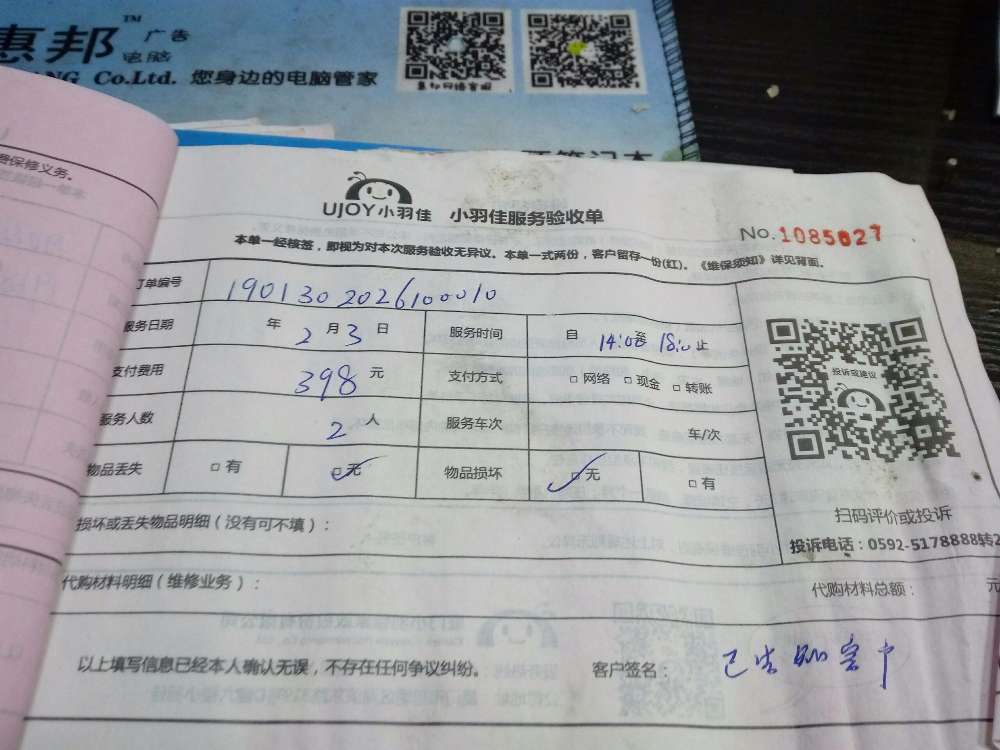 惠邦™ 广告
电脑
Co.Ltd. 您身边的电脑管家
惠邦网络客服
费保修义务。
UJOY小羽佳 小羽佳服务验收单
No.1085027
本单一经核签，即视为对本次服务验收无异议。本单一式两份，客户留存一份(红)。《维保须知》详见背面。
订单编号 190130202610010
服务日期 年 2 月 3 日 服务时间 自 14:00 至 18:0 止
支付费用 398 元 支付方式 □ 网络 □ 现金 □ 转账
服务人数 2 人 服务车次 车/次
物品丢失 □ 有 □ 无 ✓ 物品损坏 □ 无 ✓ □ 有
投诉或建议
扫码评价或投诉
投诉电话：0592-5178888转2
损坏或丢失物品明细（没有可不填）：
代购材料明细（维修业务）： 代购材料总额： 元
以上填写信息已经本人确认无误，不存在任何争议纠纷。 客户签名： 已告知客户